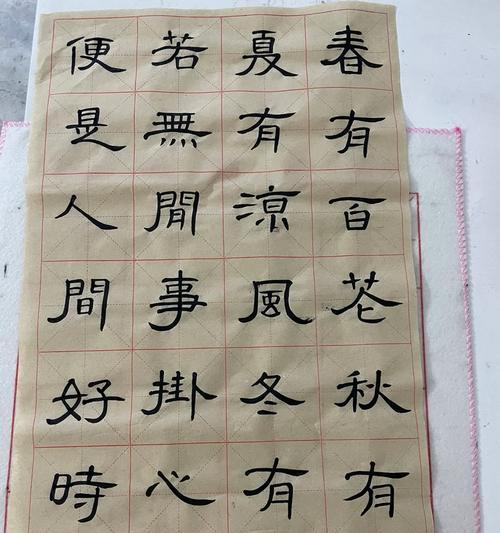 春有百花秋有
夏有涼風冬有
若無閒事掛心
便是人間好時